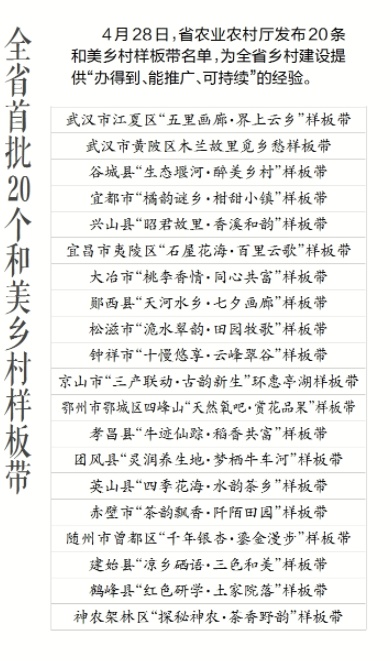 全省首批20个和美乡村样板带
4月28日，省农业农村厅发布20条
和美乡村样板带名单，为全省乡村建设提
供“办得到、能推广、可持续”的经验。
武汉市江夏区“五里画廊·界上云乡”样板带
武汉市黄陂区木兰故里觅乡愁样板带
谷城县“生态堰河·醉美乡村”样板带
宜都市“橘韵谜乡·柑甜小镇”样板带
兴山县“昭君故里·香溪和韵”样板带
宜昌市夷陵区“石屋花海·百里云歌”样板带
大冶市“桃李香情·同心共富”样板带
郧西县“天河水乡·七夕画廊”样板带
松滋市“洈水翠韵·田园牧歌”样板带
钟祥市“十慢悠享·云峰翠谷”样板带
京山市“三产联动·古韵新生”环惠亭湖样板带
鄂州市鄂城区四峰山“天然氧吧·赏花品果”样板带
孝昌县“牛迹仙踪·稻香共富”样板带
团风县“灵润养生地·梦栖牛车河”样板带
英山县“四季花海·水韵茶乡”样板带
赤壁市“茶韵飘香·阡陌田园”样板带
随州市曾都区“千年银杏·鎏金漫步”样板带
建始县“凉乡硒语·三色和美”样板带
鹤峰县“红色研学·土家院落”样板带
神农架林区“探秘神农·茶香野韵”样板带